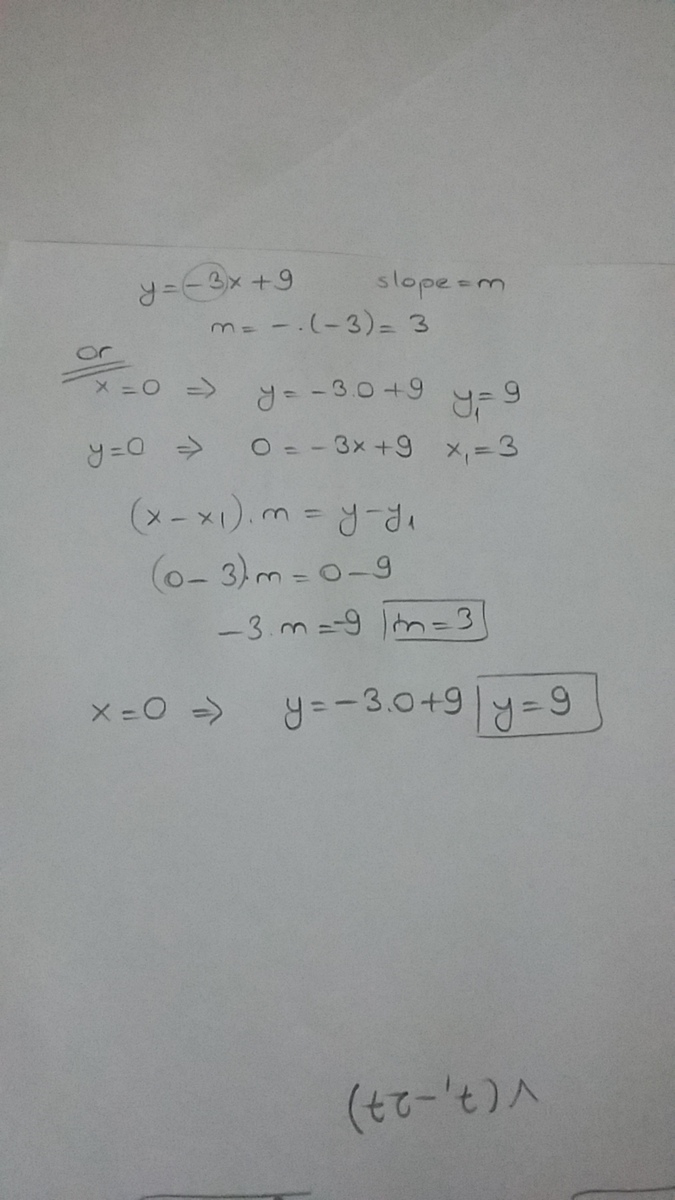 y = -3x + 9 slope = m
m = - . (-3) = 3
or
x = 0 ⇒ y = -3.0 + 9 y₁ = 9
y = 0 ⇒ 0 = -3x + 9 x₁ = 3
(x - x₁) . m = y - y₁
(0 - 3) . m = 0 - 9
-3 . m = -9 m = 3
x = 0 ⇒ y = -3.0 + 9 y = 9
V(7, -27)